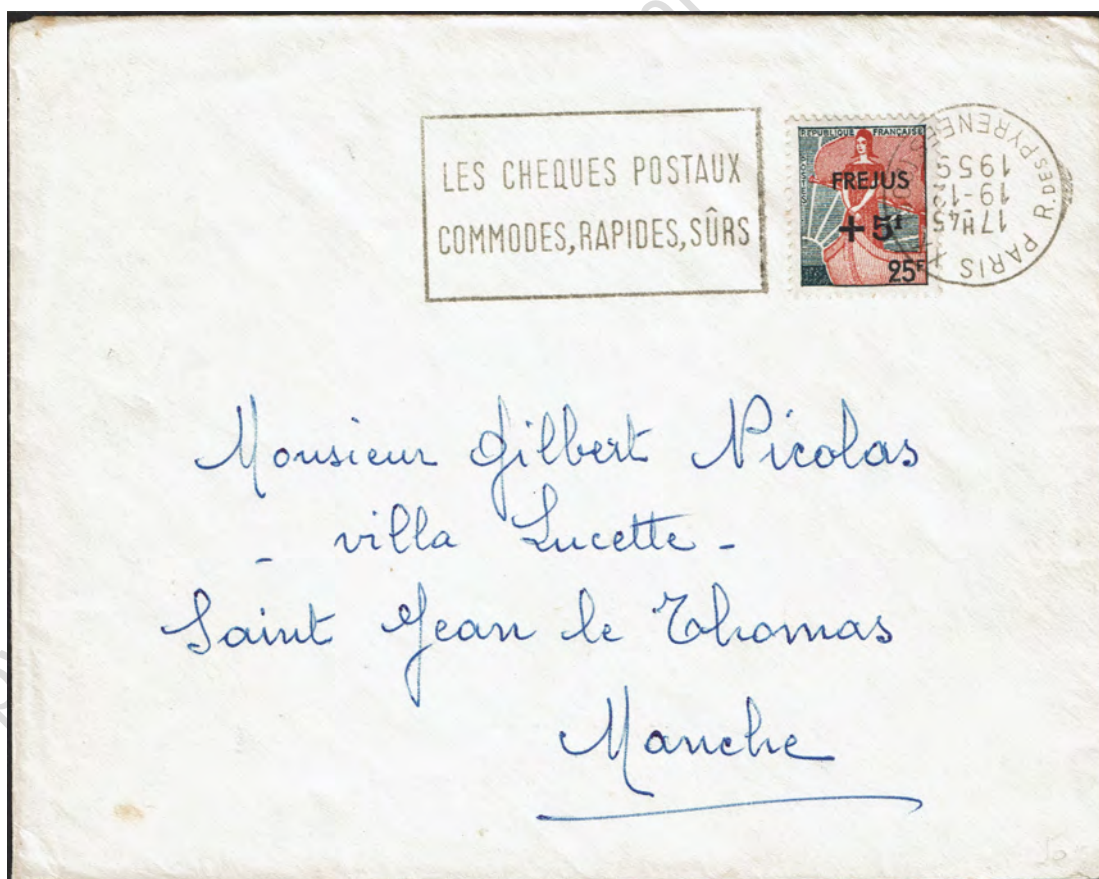 LES CHEQUES POSTAUX
COMMODES, RAPIDES, SÛRS
REPUBLIQUE FRANÇAISE
POSTES
FREJUS
+ 5F
25F
PARIS
R. DES PYRENEES
17H45
19-12
1959
Monsieur Gilbert Nicolas
- villa Lucette -
Saint Jean le Thomas
Manche